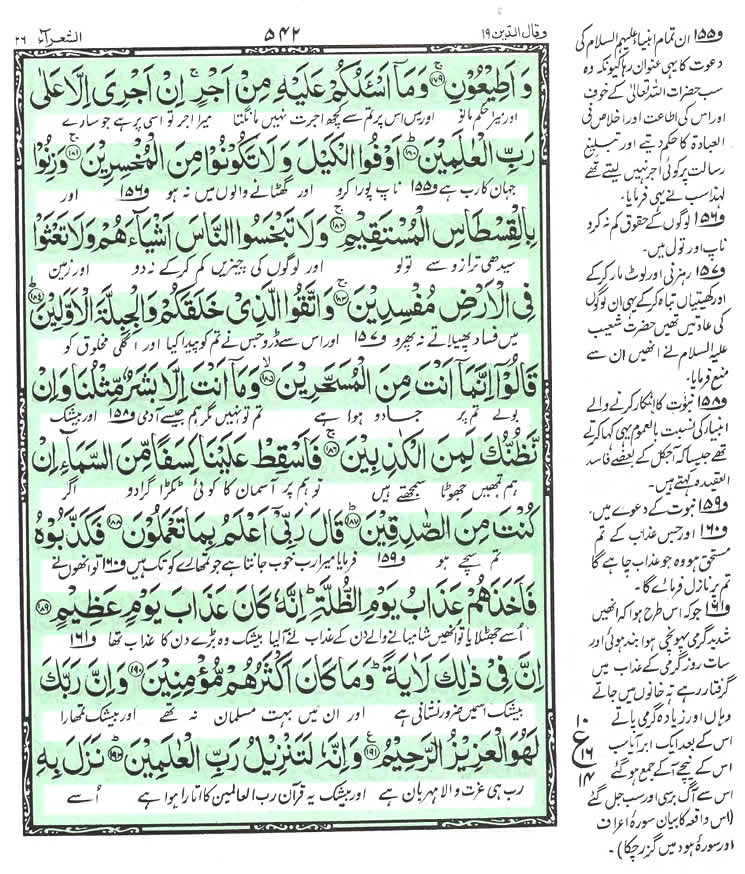 وقال الذین ۱۹
۵۴۲
الشعرآء ۲۶
وَ اَطِیْعُوْنِ ﴿۱۷۹﴾ وَ مَاۤ اَسْئَلُكُمْ عَلَیْهِ مِنْ اَجْرٍ ۚ اِنْ اَجْرِیَ اِلَّا عَلٰی
اور میرا حکم مانو اور میں اس پر تم سے کچھ اجرت نہیں مانگتا میرا اجر تو اسی پر ہے جو سارے
رَبِّ الْعٰلَمِیْنَ ﴿۱۸۰﴾ اَوْفُوا الْكَیْلَ وَ لَا تَكُوْنُوْا مِنَ الْمُخْسِرِیْنَ ﴿۱۸۱﴾ وَ زِنُوْا
جہان کا رب ہے و۱۵۵ ناپ پورا کرو اور گھٹانے والوں میں نہ ہو و۱۵۶ اور
بِالْقِسْطَاسِ الْمُسْتَقِیْمِ ﴿۱۸۲﴾ وَ لَا تَبْخَسُوا النَّاسَ اَشْیَآءَهُمْ وَ لَا تَعْثَوْا
سیدھی ترازو سے تولو اور لوگوں کی چیزیں کم کرکے نہ دو اور زمین
فِی الْاَرْضِ مُفْسِدِیْنَ ﴿۱۸۳﴾ وَ اتَّقُوا الَّذِیْ خَلَقَكُمْ وَ الْجِبِلَّةَ الْاَوَّلِیْنَ ﴿۱۸۴﴾
میں فساد پھیلاتے نہ پھرو و۱۵۷ اور اس سے ڈرو جس نے تم کو پیدا کیا اور اگلی مخلوق کو
قَالُوْۤا اِنَّمَاۤ اَنْتَ مِنَ الْمُسَحَّرِیْنَ ﴿۱۸۵﴾ وَ مَاۤ اَنْتَ اِلَّا بَشَرٌ مِّثْلُنَا وَ اِنْ
بولے تم پر جادو ہوا ہے تم تو نہیں مگر ہم جیسے آدمی و۱۵۸ اور بیشک
نَّظُنُّكَ لَمِنَ الْكٰذِبِیْنَ ﴿۱۸۶﴾ فَاَسْقِطْ عَلَیْنَا كِسَفًا مِّنَ السَّمَآءِ اِنْ
ہم تمھیں جھوٹا سمجھتے ہیں تو ہم پر آسمان کا کوئی ٹکڑا گرا دو اگر
كُنْتَ مِنَ الصّٰدِقِیْنَ ﴿۱۸۷﴾ قَالَ رَبِّیْۤ اَعْلَمُ بِمَا تَعْمَلُوْنَ ﴿۱۸۸﴾ فَكَذَّبُوْهُ
تم سچے ہو و۱۵۹ فرمایا میرا رب خوب جانتا ہے جو تمہارے کوتک ہیں و۱۶۰ تو انھوں نے
فَاَخَذَهُمْ عَذَابُ یَوْمِ الظُّلَّةِ ؕ اِنَّهٗ كَانَ عَذَابَ یَوْمٍ عَظِیْمٍ ﴿۱۸۹﴾
اُسے جھٹلایا تو اُنھیں شامیانے والے دن کے عذاب نے آلیا بیشک وہ بڑے دن کا عذاب تھا و۱۶۱
اِنَّ فِیْ ذٰلِكَ لَاٰیَةً ؕ وَ مَا كَانَ اَكْثَرُهُمْ مُّؤْمِنِیْنَ ﴿۱۹۰﴾ وَ اِنَّ رَبَّكَ
بیشک اسمیں ضرور نشانی ہے اور ان میں بہت مسلمان نہ تھے اور بیشک تمھارا
لَهُوَ الْعَزِیْزُ الرَّحِیْمُ ﴿۱۹۱﴾ وَ اِنَّهٗ لَتَنْزِیْلُ رَبِّ الْعٰلَمِیْنَ ﴿۱۹۲﴾ نَزَلَ بِهِ
رب ہی عزت والا مہربان ہے اور بیشک یہ قرآن رب العالمین کا اتارا ہوا ہے اُسے
و۱۵۵ ان تمام انبیاء علیہم السلام کی
دعوت کا یہی عنوان رہا کیونکہ وہ
سب حضرات اللہ تعالیٰ کے خوف
اور اس کی اطاعت اور اخلاص فی
العبادۃ کا حکم دیتے اور تبلیغ
رسالت پر کوئی اجر نہیں لیتے تھے
لہٰذا سب نے یہی فرمایا۔
و۱۵۶ لوگوں کے حقوق کم نہ کرو
ناپ اور تول میں۔
و۱۵۷ رہزنی اور لوٹ مار کرکے
اور کھیتیاں تباہ کرکے یہی ان لوگوں
کی عادتیں تھیں حضرت شعیب
علیہ السلام نے انھیں ان سے
منع فرمایا۔
و۱۵۸ نبوت کا انکار کرنے والے
انبیاء کی نسبت بالعموم یہی کہا کرتے
تھے جیسا کہ آجکل کے بعضے فاسد
العقیدہ کہتے ہیں۔
و۱۵۹ نبوت کے دعوے میں۔
و۱۶۰ اور جس عذاب کے تم
مستحق ہو وہ جو عذاب چاہے گا
تم پر نازل فرمائے گا۔
و۱۶۱ جو کہ اس طرح ہوا کہ انھیں
شدید گرمی پہونچی ہوا بند ہوئی اور
سات روز گرمی کے عذاب میں
گرفتار رہے تہ خانوں میں جاتے
وہاں اور زیادہ گرمی پاتے
اس کے بعد ایک ابر آیا سب
اس کے نیچے آ کے جمع ہو گئے
اس سے آگ برسی اور سب جل گئے
(اس واقعہ کا بیان سورۂ اعراف
اور سورۂ ہود میں گزر چکا)۔
۱۰
ع
۱۶
۱۴